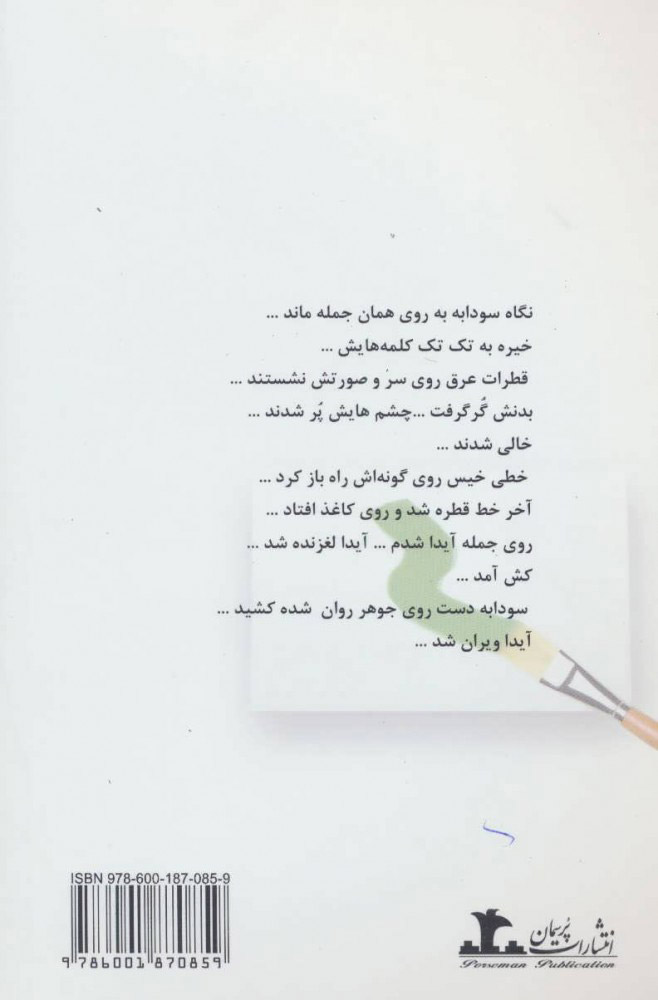 نگاه سودابه به روی همان جمله ماند ...
خیره به تک تک کلمه‌هایش ...
قطرات عرق روی سر و صورتش نشستند ...
بدنش گُرگرفت ...چشم هایش پُر شدند ...
خالی شدند ...
خطی خیس روی گونه‌اش راه باز کرد ...
آخر خط قطره شد و روی کاغذ افتاد ...
روی جمله آیدا شدم ... آیدا لغزنده شد ...
کش آمد ...
سودابه دست روی جوهر روان شده کشید ...
آیدا ویران شد ...
ISBN 978-600-187-085-9
9 786001 870859
انتشارات پُرسمان
Porseman Publication